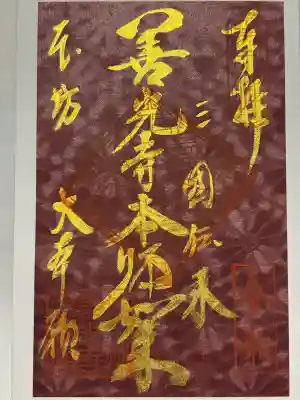 奉拝
三国伝来
善光寺本師如来
本坊 大本願